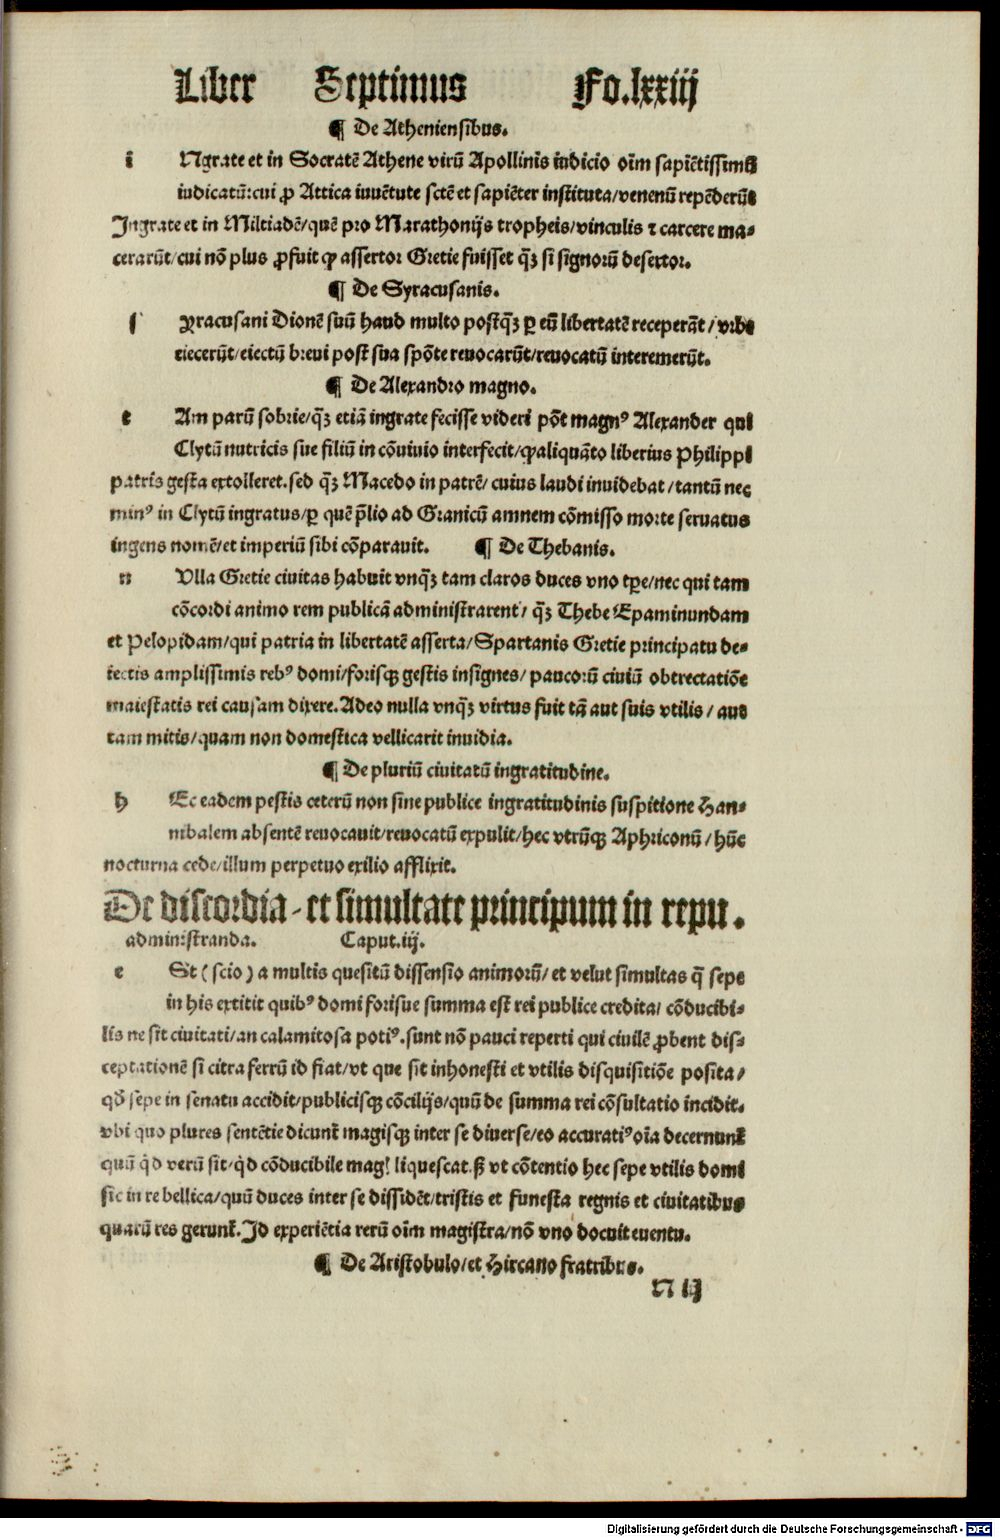 Liber Septimus Fo.lxxiij
¶ De Atheniensibus.
i Ngrate et in Socratē Athene virū Apollinis iudicio oīm sapiētissimū
iudicatū:cui ꝓ Attica iuuētute sctē et sapiēter instituta/venenū repēderūt
Ingrate et in Miltiadē/quē pro Marathonijs tropheis/vinculis ⁊ carcere ma-
cerarūt/cui nō plus ꝓfuit ꝙ assertor Gretie fuisset q̄ȝ si signorū desertor.
¶ De Syracusanis.
ſ yracusani Dionē suū haud multo postq̄ȝ ꝑ eū libertatē receperāt/vrbe
eiecerūt/eiectū breui post sua spōte reuocarūt/reuocatū interemerūt.
¶ De Alexandro magno.
t Am parū sobrie/q̄ȝ etiā ingrate fecisse videri pōt magnꝰ Alexander qui
Clytū nutricis sue filiū in cōuiuio interfecit/ꝙ aliquāto liberius Philippi
patris gesta extolleret.sed q̄ȝ Macedo in patrē/cuius laudi inuidebat/tantū nec
minꝰ in Clytū ingratus/ꝑ quē p̄lio ad Granicū amnem cōmisso morte seruatus
ingens nomē/et imperiū sibi cōparauit. ¶ De Thebanis.
n Vlla Gretie ciuitas habuit vnq̄ȝ tam claros duces vno tꝑe/nec qui tam
cōcordi animo rem publicā administrarent/q̄ȝ Thebe Epaminundam
et Pelopidam/qui patria in libertatē asserta/Spartanis Gretie principatu de-
iectis amplissimis rebꝰ domi/forisqȝ gestis insignes/paucorū ciuiū obtrectatiōe
maiestatis rei causam dixere.Adeo nulla vnq̄ȝ virtus fuit tā aut suis vtilis/aut
tam mitis/quam non domestica vellicarit inuidia.
¶ De pluriū ciuitatū ingratitudine.
h Ec eadem pestis ceterū non sine publice ingratitudinis suspitione Han-
nibalem absentē reuocauit/reuocatū expulit/hec vtrūqȝ Aphricanū/hūc
nocturna cede/illum perpetuo exilio afflixit.
De discordia-et simultate principum in repu.
administranda. Caput.iij.
e St (scio) a multis quesitū dissensio animorū/et velut simultas q̄ sepe
in his extitit quibꝰ domi forisue summa est rei publice credita/cōducibi-
lis ne sit ciuitati/an calamitosa potiꝰ.sunt nō pauci reperti qui ciuilē ꝓbent dis-
ceptationē si citra ferrū id fiat/vt que sit inhonesti et vtilis disquisitiōe posita/
qd̄ sepe in senatu accidit/publicisqȝ cōcilijs/quū de summa rei cōsultatio incidit.
vbi quo plures sentētie dicunt̄ magisqȝ inter se diuerse/eo accuratiꝰ oīa decernunt̄
quū qd̄ verū sit/qd̄ cōducibile mag̉ liquescat.sꝫ vt cōtentio hec sepe vtilis domi
sic in re bellica/quū duces inter se dissidēt/tristis et funesta regnis et ciuitatibus
quarū res gerunt̄.Id experiētia rerū oīm magistra/nō vno docuit euentu.
¶ De Aristobulo/et Hircano fratribus.
N ij
Digitalisierung gefördert durch die Deutsche Forschungsgemeinschaft - DFG